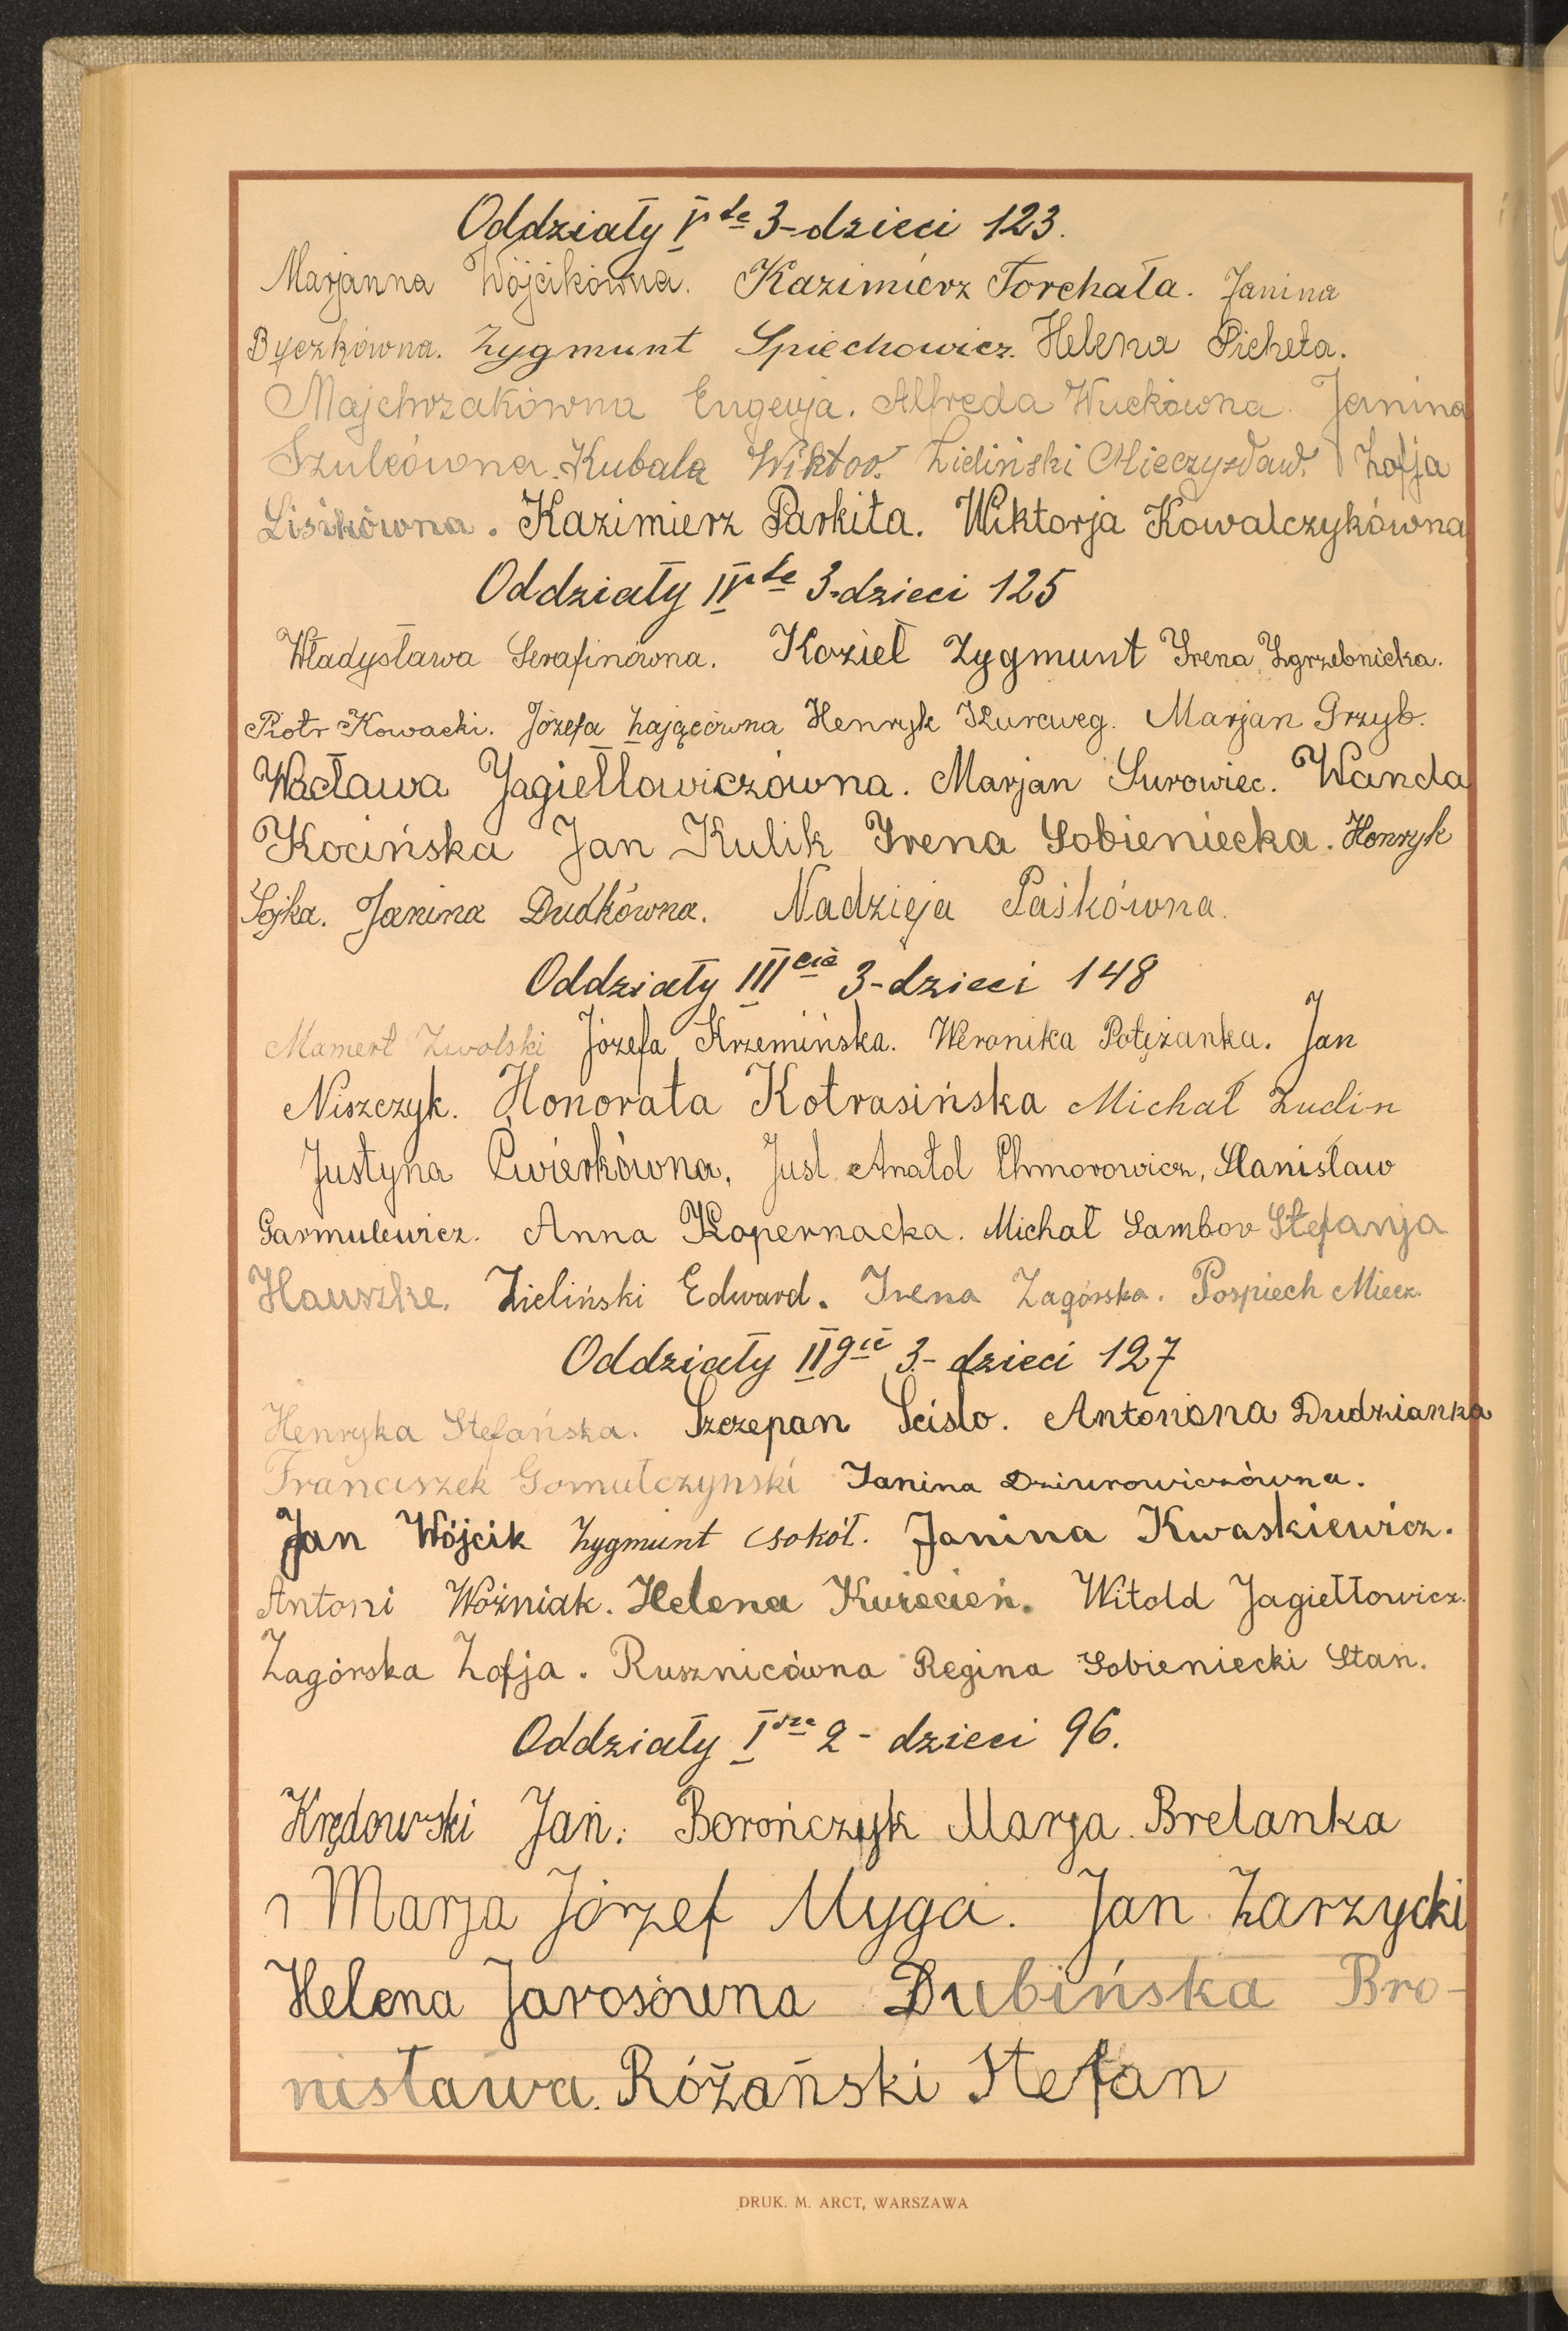 Oddziały V te 3-dzieci 123.
Marjanna Wójcikówna. Kazimierz Torchała. Janina
Byczkówna. Zygmunt Spiechowicz. Helena Picheta.
Majchrzakówna Eugenja. Alfreda Wuckówna. Janina
Szulcówna. Kubala Wiktor. Zieliński Mieczysław. Zofja
Lisikówna. Kazimierz Parkita. Wiktorja Kowalczykówna
Oddziały IV te 3-dzieci 125
Władysława Serafinówna. Kozieł Zygmunt Irena Zgrzebnicka.
Piotr Kowacki. Józefa Zającówna Henryk Kurcweg. Marjan Grzyb.
Wacława Jagiełłowiczówna. Marjan Surowiec. Wanda
Kocińska Jan Kulik Irena Sobieniecka. Henryk
Sojka. Janina Dudkówna. Nadzieja Paśkówna.
Oddziały III cie 3-dzieci 148
Mamert Zwolski Józefa Krzemińska. Weronika Potężanka. Jan
Niszczyk. Honorata Kotrasińska Michał Zudin
Justyna Ćwierkówna, Just Anatol Chmorowicz, Stanisław
Garmulewicz. Anna Kopernacka. Michał Sambor Stefanja
Hauszke. Zieliński Edward. Irena Zagórska. Pospiech Miecz.
Oddziały II gie 3-dzieci 127
Henryka Stefańska. Szczepan Scisło. Antonina Dudzianka
Franciszek Gomułczynski Janina Dziurowiczówna.
Jan Wójcik Zygmunt Sokół. Janina Kwaskiewicz.
Antoni Woźniak. Helena Kwiecień. Witold Jagiełłowicz.
Zagórska Zofja. Rusznicówna Regina Sobieniecki Stan.
Oddziały I sze 2-dzieci 96.
Krędowski Jan. Borończyk Marja. Brelanka
Marja Józef Myga. Jan Zarzycki
Helena Jarosówna Dubińska Bro-
nisława. Różański Stefan
DRUK. M. ARCT, WARSZAWA